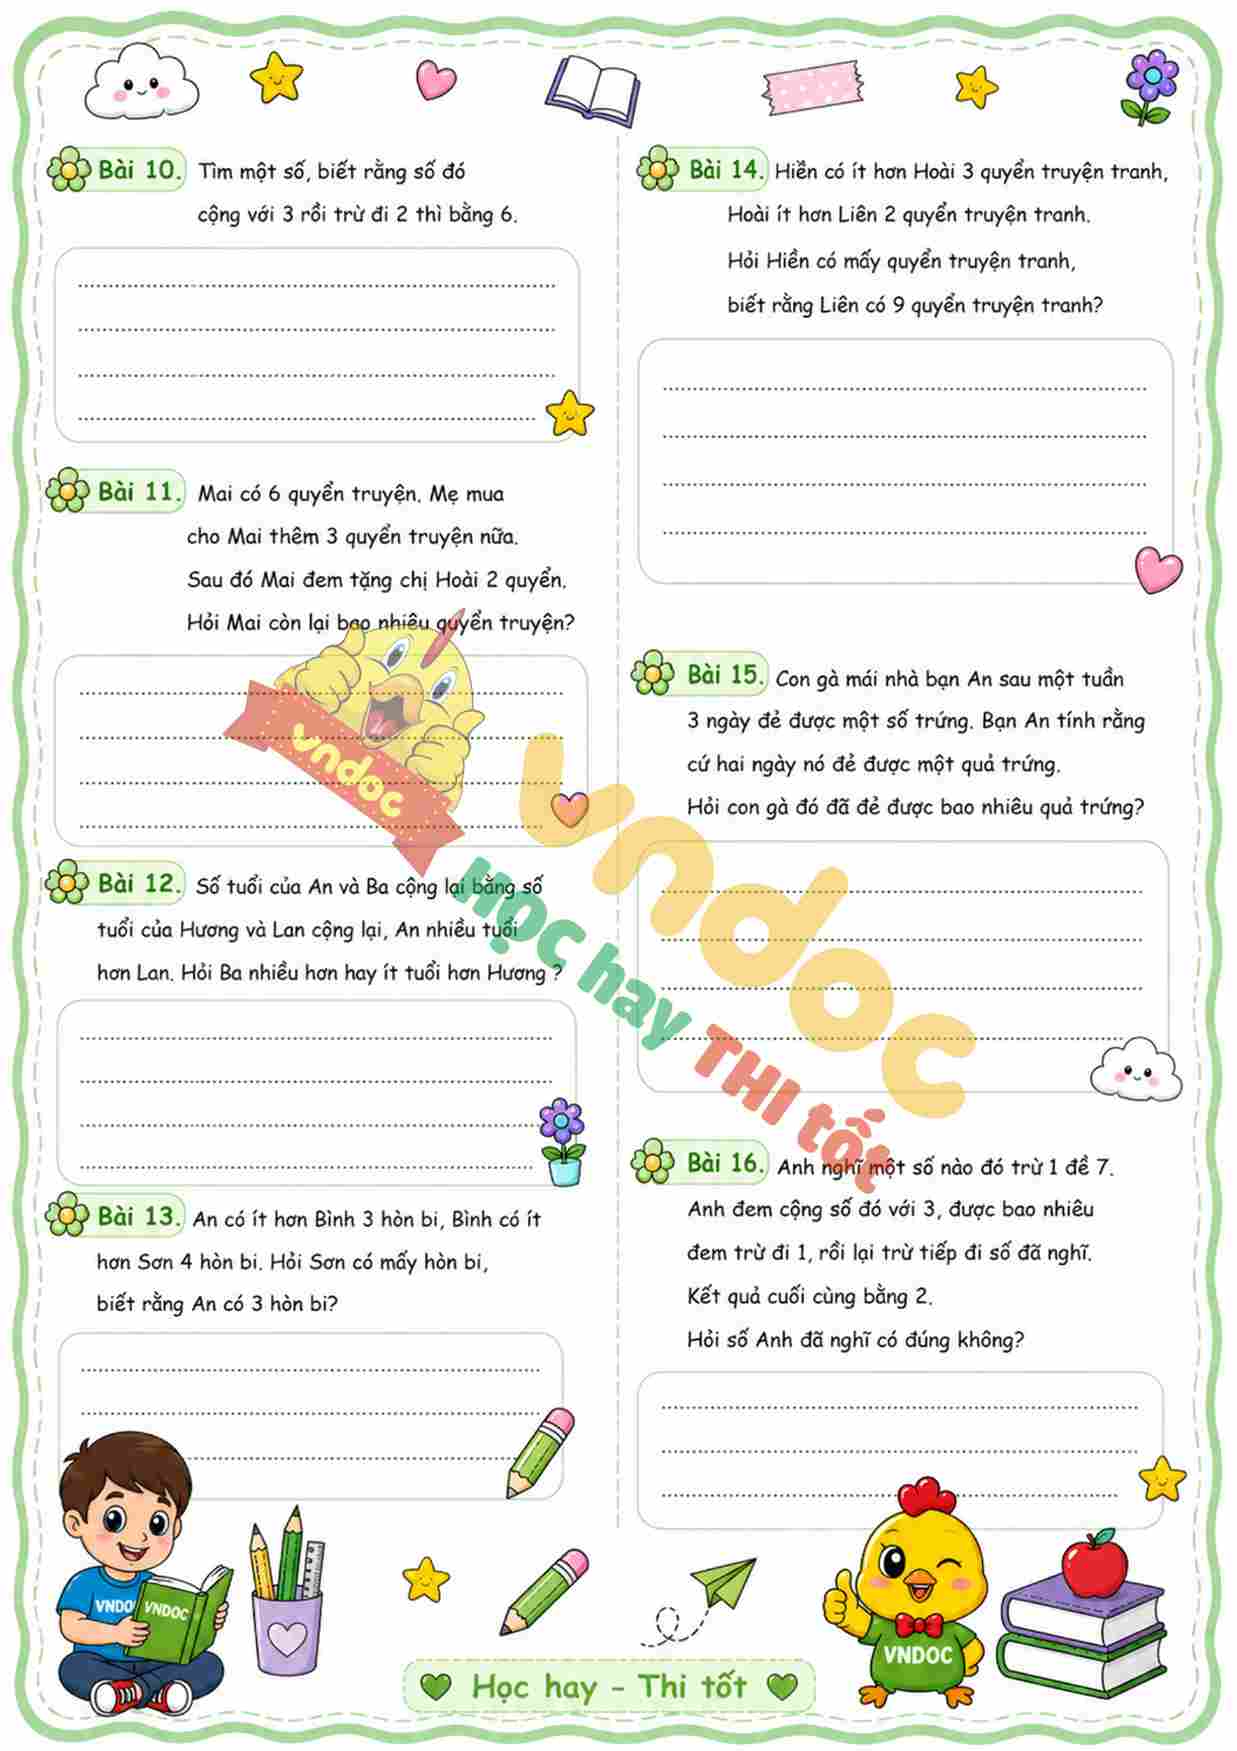 Bài 10. Tìm một số, biết rằng số đó
cộng với 3 rồi trừ đi 2 thì bằng 6.
Bài 11. Mai có 6 quyển truyện. Mẹ mua
cho Mai thêm 3 quyển truyện nữa.
Sau đó Mai đem tặng chị Hoài 2 quyển.
Hỏi Mai còn lại bao nhiêu quyển truyện?
Bài 12. Số tuổi của An và Ba cộng lại bằng số
tuổi của Hương và Lan cộng lại, An nhiều tuổi
hơn Lan. Hỏi Ba nhiều hơn hay ít tuổi hơn Hương ?
Bài 13. An có ít hơn Bình 3 hòn bi, Bình có ít
hơn Sơn 4 hòn bi. Hỏi Sơn có mấy hòn bi,
biết rằng An có 3 hòn bi?
Bài 14. Hiền có ít hơn Hoài 3 quyển truyện tranh,
Hoài ít hơn Liên 2 quyển truyện tranh.
Hỏi Hiền có mấy quyển truyện tranh,
biết rằng Liên có 9 quyển truyện tranh?
Bài 15. Con gà mái nhà bạn An sau một tuần
3 ngày đẻ được một số trứng. Bạn An tính rằng
cứ hai ngày nó đẻ được một quả trứng.
Hỏi con gà đó đã đẻ được bao nhiêu quả trứng?
Bài 16. Anh nghĩ một số nào đó trừ 1 đề 7.
Anh đem cộng số đó với 3, được bao nhiêu
đem trừ đi 1, rồi lại trừ tiếp đi số đã nghĩ.
Kết quả cuối cùng bằng 2.
Hỏi số Anh đã nghĩ có đúng không?
vndoc
vndoc
Học hay THI tốt
VNDOC
VNDOC
VNDOC
Học hay - Thi tốt